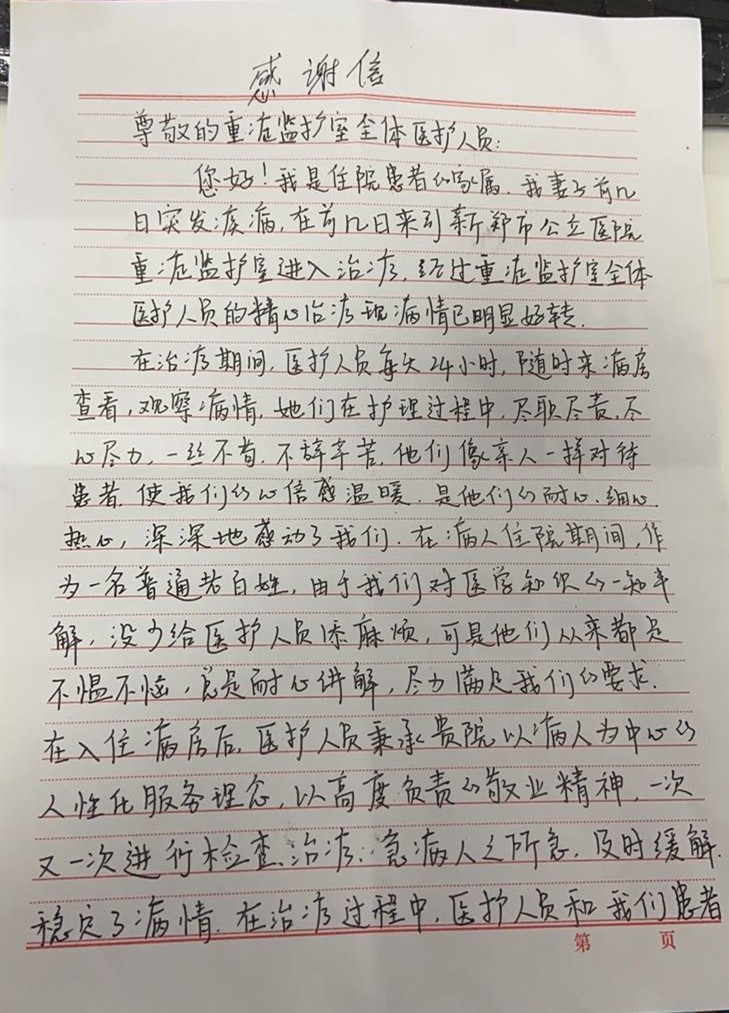 感谢信
尊敬的重症监护室全体医护人员:
您好!我是住院患者的家属.我妻子前几
日突发疾病,在前几日来到新郑市公立医院
重症监护室进入治疗,经过重症监护室全体
医护人员的精心治疗现病情已明显好转.
在治疗期间,医护人员每天24小时,随时来病房
查看,观察病情,她们在护理过程中,尽职尽责,尽
心尽力,一丝不苟.不辞辛苦.他们像亲人一样对待
患者.使我们的心倍感温暖.是他们的耐心.细心.
热心,深深地感动了我们.在病人住院期间,作
为一名普通老百姓,由于我们对医学知识的一知半
解,没少给医护人员添麻烦,可是他们从来都是
不愠不恼,总是耐心讲解,尽力满足我们的要求.
在入住病房后,医护人员秉承贵院以病人为中心的
人性化服务理念,以高度负责的敬业精神,一次
又一次进行检查治疗:急病人之所急.及时缓解.
稳定了病情.在治疗过程中,医护人员和我们患者
第 页